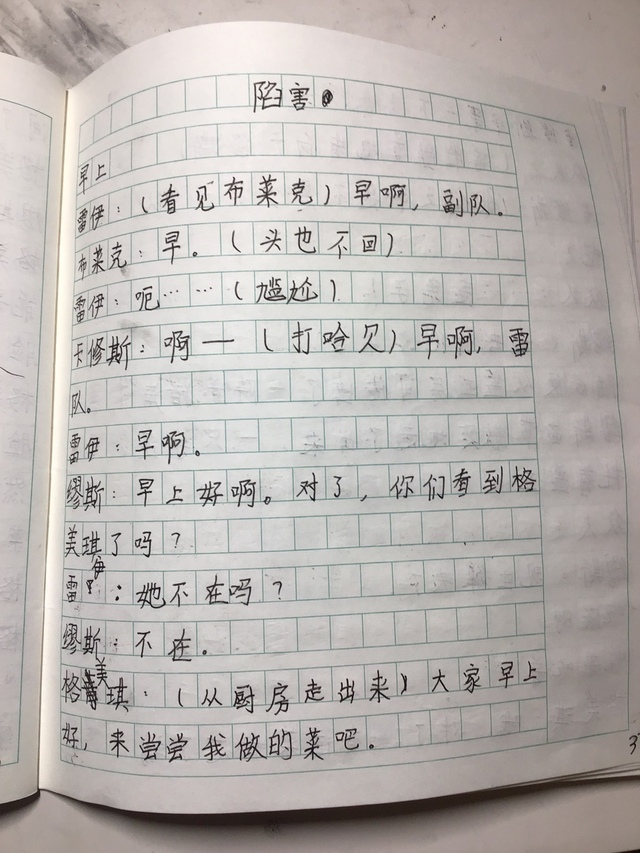 陷害
早上
雷伊：（看见布莱克）早啊，副队。
布莱克：早。（头也不回）
雷伊：呃……（尴尬）
卡修斯：啊——（打哈欠）早啊，雷
队。
雷伊：早啊。
缪斯：早上好啊。对了，你们看到格
美琪了吗？
雷伊：她不在吗？
缪斯：不在。
格美琪：（从厨房走出来）大家早上
好，来尝尝我做的菜吧。